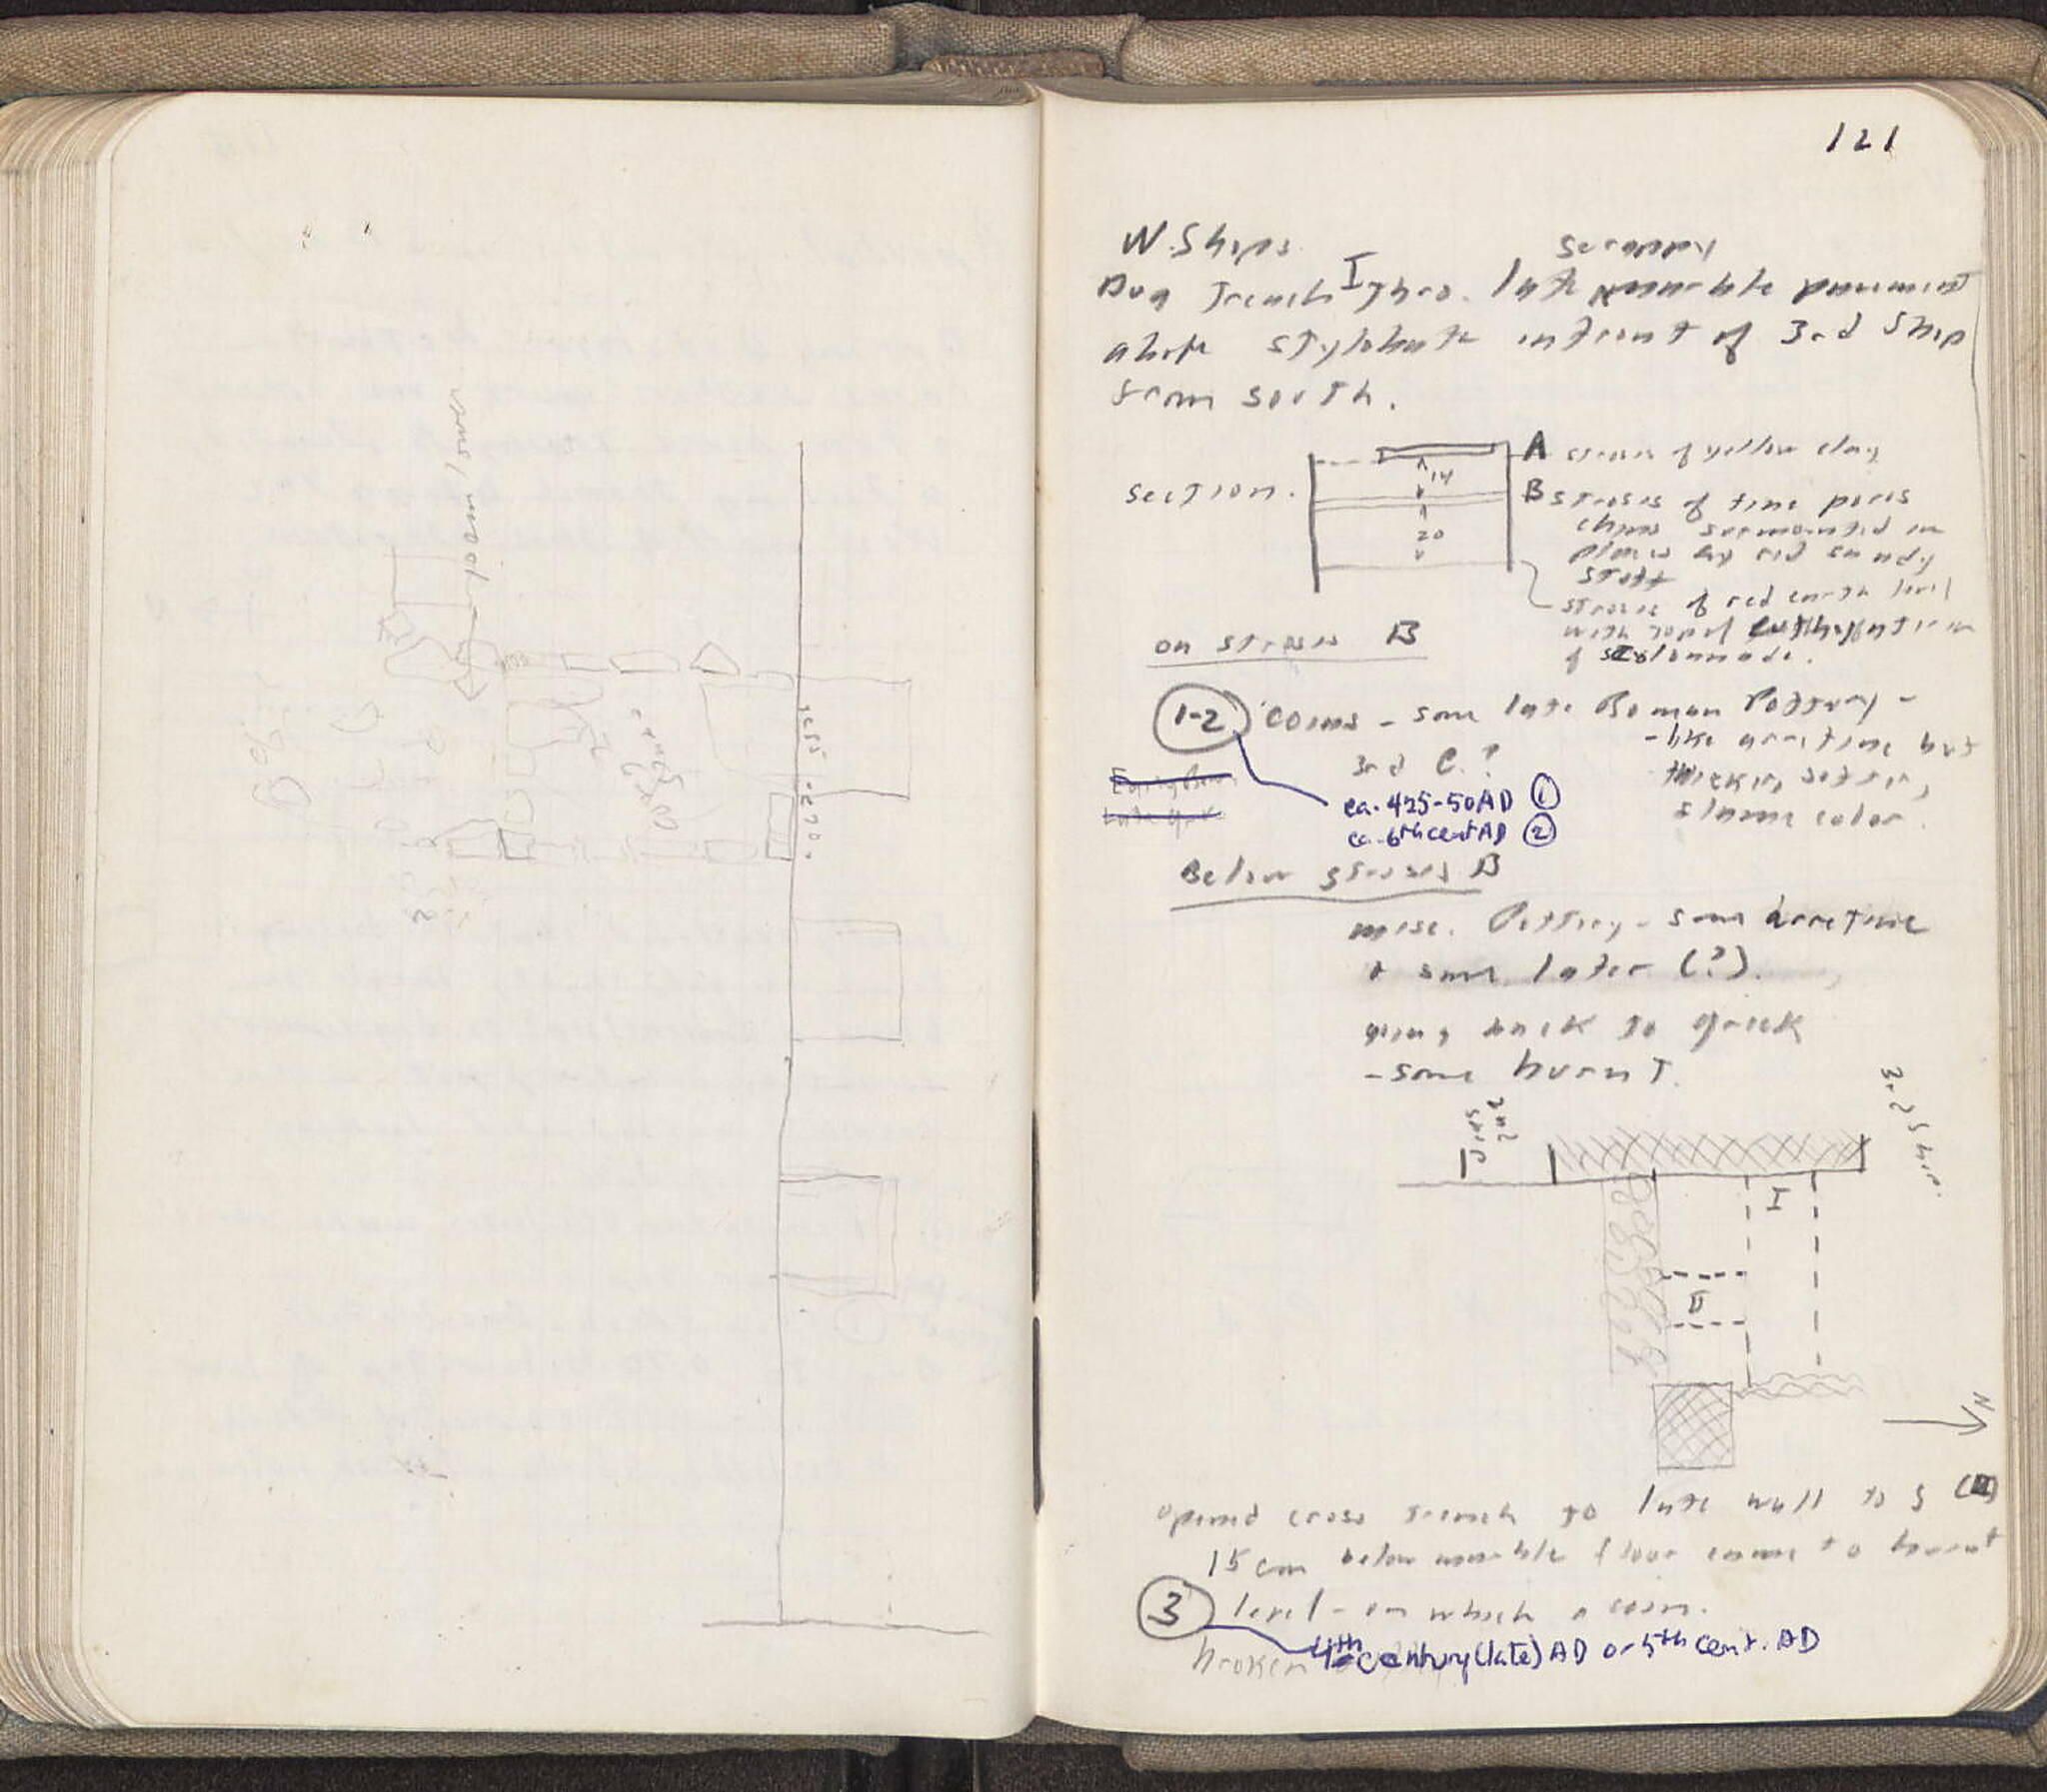 Wood/Tower
121
W. Shops
Scrappy
Dug Trench I Thro. late marble pavement
above stylobate in front of 3rd Shop
from south.
Section.
A stroses of yellow clay
14
B stroses of fine poros
chips surmounted in
places by red sandy
stuff
20
stroses of red earth level
with top of
of colonnade.
on stroses B
1-2 coins - some late Roman Pottery -
- like arretine but
3rd C.?
thicker, softer,
& same color.
ca. 425-50 AD 1
ca. 6th cent AD 2
Below stroses B
misc. Pottery - some Arretine
& some later (?).
going back to Greek
- some burnt.
2nd
Shop
3rd Shop.
I
II
N
opened cross trench to late wall to S (II)
15 cm below marble floor came to burnt
3 level - on which a coin.
broken
4th century (late) AD or 5th cent. AD